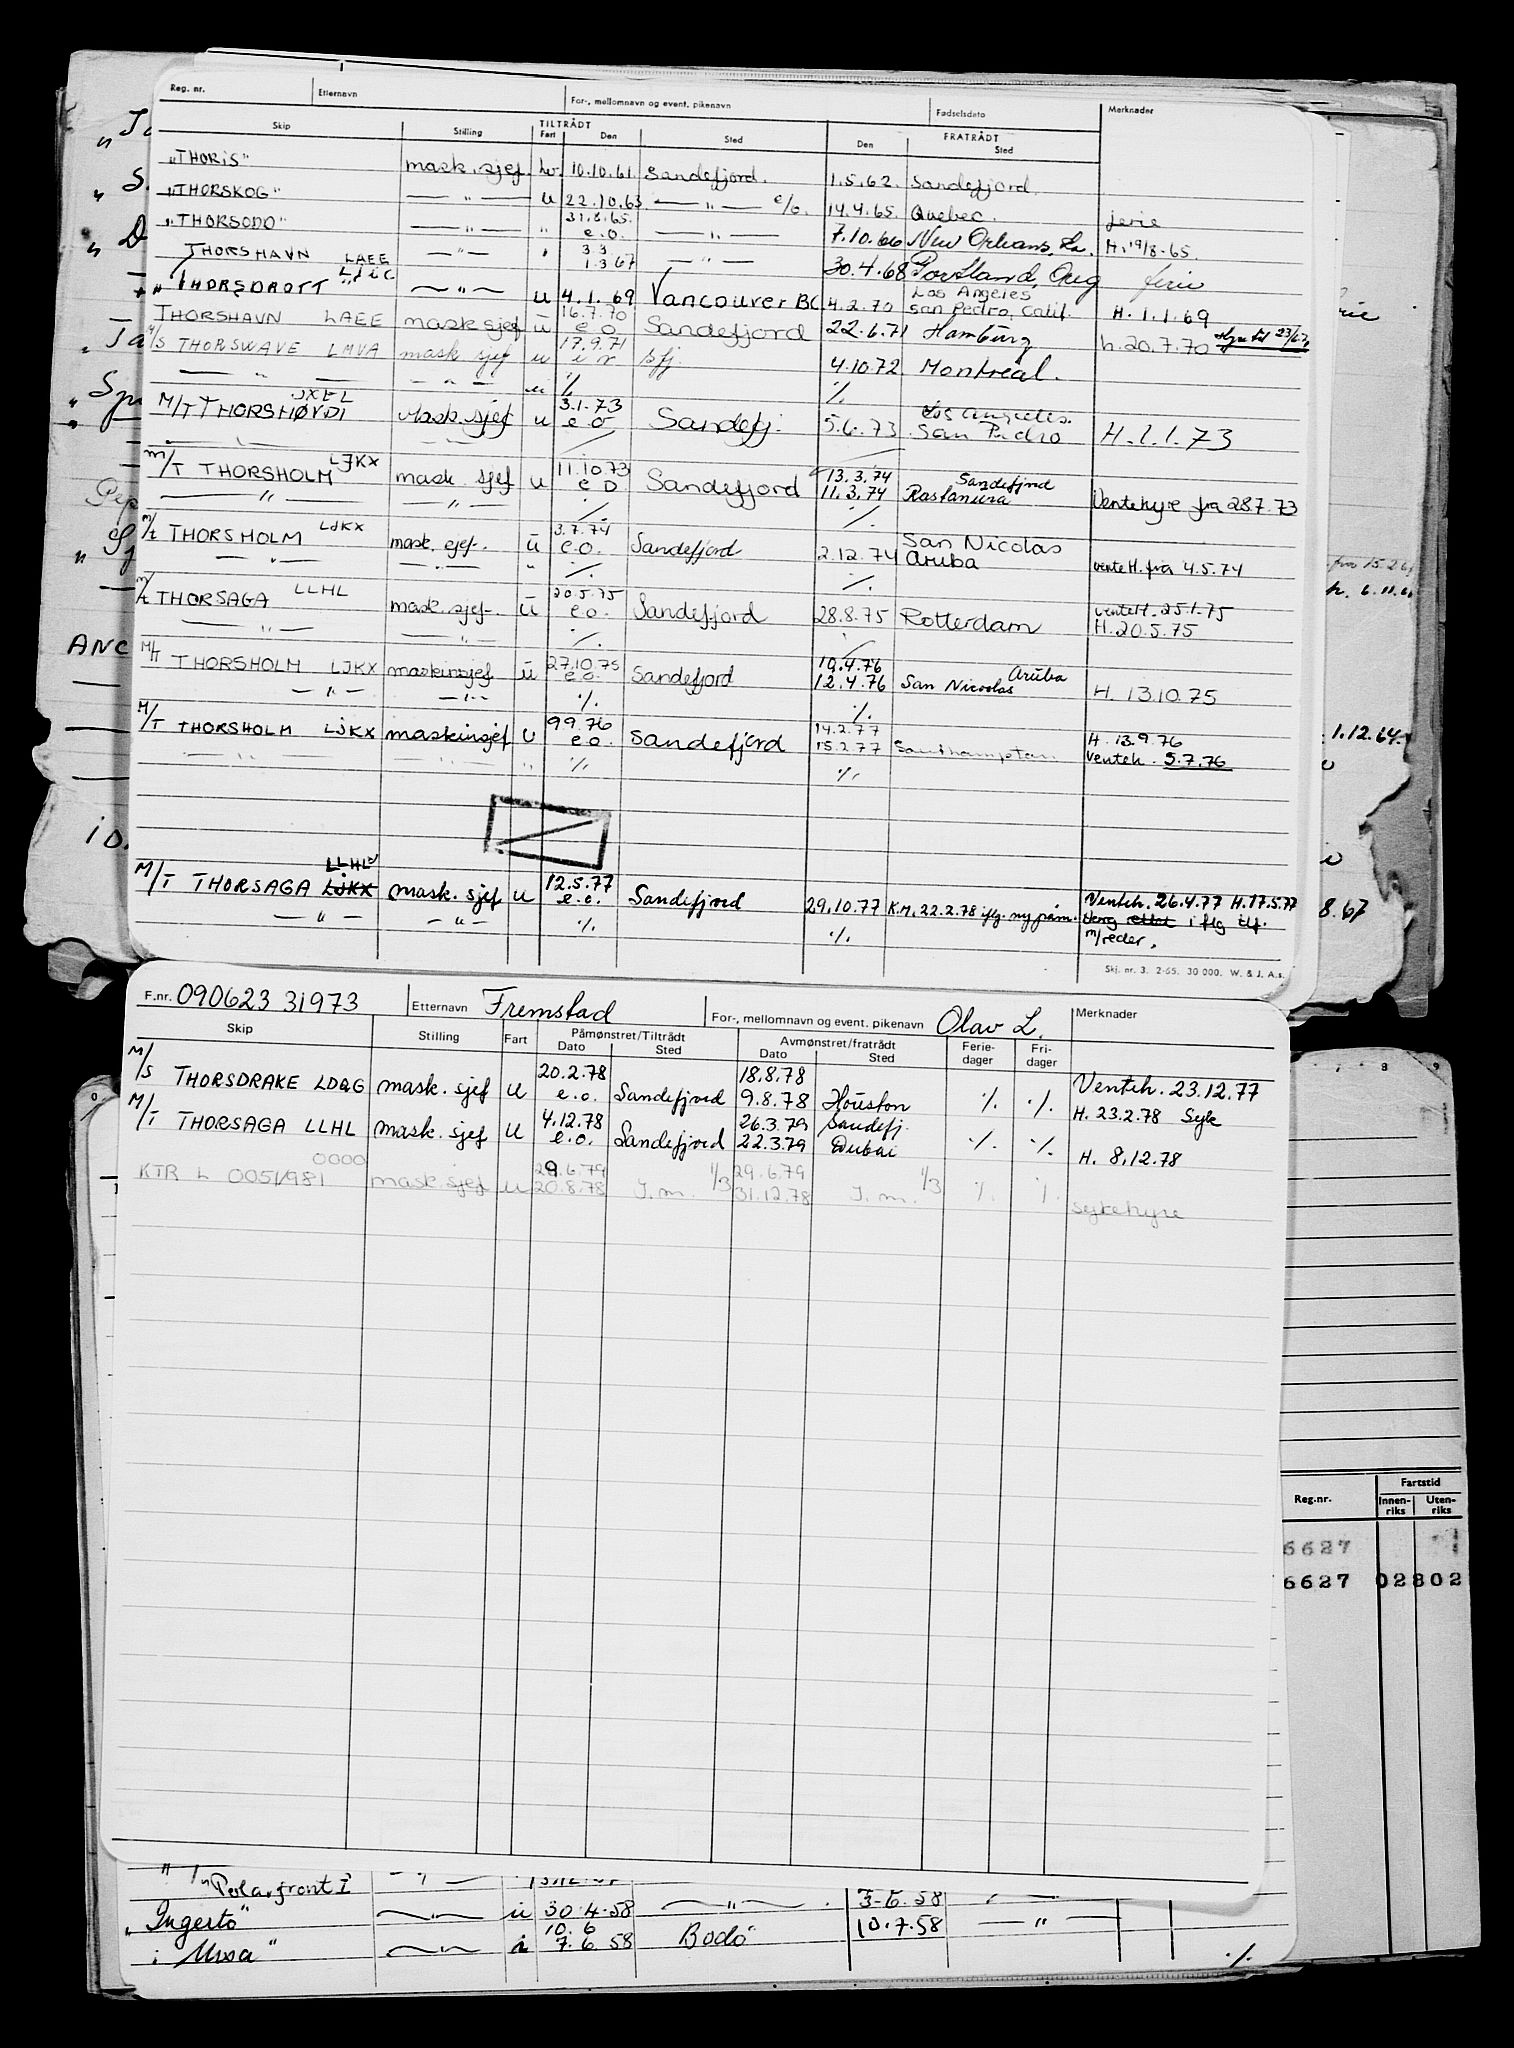 Reg. nr. Etternavn For-, mellomnavn og event. pikenavn Fødselsdato Merknader
Skip Stilling TILTRÅDT Fart Den Sted FRATRÅDT Den Sted
"THORIS" mask. sjef. Lv. 10.10.61. Sandefjord. 1.5.62. Sandefjord.
"THORSKOG" — " — u 22.10.63. — " — e/o. 14.4.65. Quebec. ferie
"THORSODD" — " — " 31.8.65. e.o. — " — 7.10.66 New Orleans, La. H. 19/8-65.
THORSHAVN LAEE — " — 3.3 1.3.67 — " — 30.4.68 Portland, Oreg ferie
"THORSDROTT" — " — u 4.1.69 Vancouver BC. 4.2.70 Los Angeles San Pedro, Calif. H. 1.1.69
THORSHAVN LAEE mask sjef u 16.7.70 e.o Sandefjord 22.6.71 Hamburg h. 20.7.70
M/S THORSWAVE LMVA mask sjef u 17.9.71 sfj. 4.10.72 Montreal.
— " — — " — ·/. ·/.
M/T THORSHØVDI JXEL mask. sjef u 3.1.73 e o Sandefj. 5.6.73 Los Angeles. San Pedro H. 1.1.73
M/T THORSHOLM LJKX mask. sjef u 11.10.73 e o Sandefjord 13.3.74 11.3.74 Sandefjord Rastanura Ventehyre fra 28.7.73
— " — — " — ·/. ·/.
M/T THORSHOLM LJKX mask. sjef. u 3.7.74 e.o. Sandefjord 2.12.74 San Nicolas Aruba vente H. fra 4.5.74
— " — — " — " ·/. ·/.
M/T THORSAGA LLHL mask. sjef. u 20.5.75 e.o. Sandefjord 28.8.75 Rotterdam vente H. 25.1.75 H. 20.5.75
— " — — " — ·/. ·/.
M/T THORSHOLM LJKX maskinsjef u 27.10.75 e.o. Sandefjord 10.4.76 12.4.76 San Nicolas Aruba H. 13.10.75
— " — — " — ·/. ·/.
M/T THORSHOLM LJKX maskinsjef u 9.9.76 e.o. Sandefjord 14.2.77 15.2.77 Southampton. H. 13.9.76 Venteh. 5.7.76
— " — " " ·/. ·/.
M/T THORSAGA LJKX LLHL mask. sjef u 12.5.77 e.o. Sandefjord 29.10.77 K.M. 22.2.78 iflg. ny påm. Venteh. 26.4.77 H. 17.5.77
— " — — " — ·/. ·/. i flg tlf.
m/reder.
Skj. nr. 3. 2-65. 30 000. W. & J. A.s.
F.nr. 090623 31973 Etternavn Fremstad For-, mellomnavn og event. pikenavn Olav L. Merknader
Skip Stilling Fart Påmønstret/Tiltrådt Dato Sted Avmønstret/fratrådt Dato Sted Ferie-dager Fri-dager
M/S THORSDRAKE LDQG mask. sjef u 20.2.78 e.o. Sandefjord 18.8.78 9.8.78 Houston ·/. ·/. Venteh. 23.12.77 H. 23.2.78 Syk
M/T THORSAGA LLHL mask. sjef u 4.12.78 e.o. Sandefjord 26.3.79 22.3.79 Sandefj. Dubai ·/. ·/. H. 8.12.78
KTR L 0051/981 0000 mask. sjef u 29.6.79 20.8.78 J.m. 1/3 29.6.79 31.12.78 J.m. 1/3 ·/. ·/. Sykehyre
Reg.nr. Fartstid
Innen-riks Uten-riks
6627
6627 02802
Polarfront I — " — 3-5.58
"Ingertö" — " — u 30.4.58 — " — . 10.7.58 — " —
"Ursa" — " — i 10.6 7.6.58 Bodö ·/.